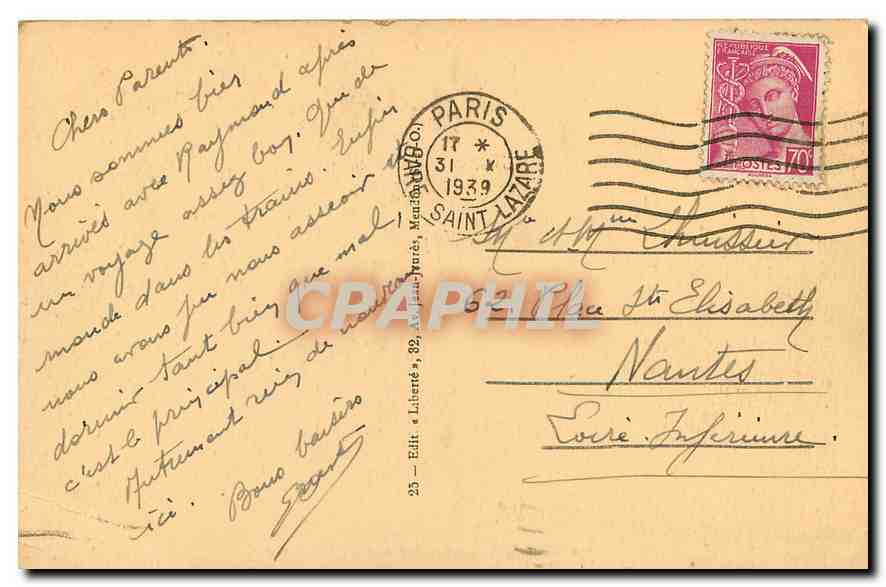 Chers Parents.
Nous sommes bien
arrivés avec Raymond après
un voyage assez bon. Que de
monde dans les trains. Enfin
nous avons pu nous asseoir et
dormir tant bien que mal
c'est le principal.
Autrement rien de nouveau
ici. Bons baisers
25 — Edit. « Liberté », 32, Av. Jean-Jaurès, Meudon (S.-O.
PARIS
GARE SAINT LAZARE
17 *
31 X
1939
REPUBLIQUE FRANÇAISE
POSTES 70c
Mr et Mme
62 Ste Elisabeth
Nantes
Loire Inférieure.
CPAPHIL